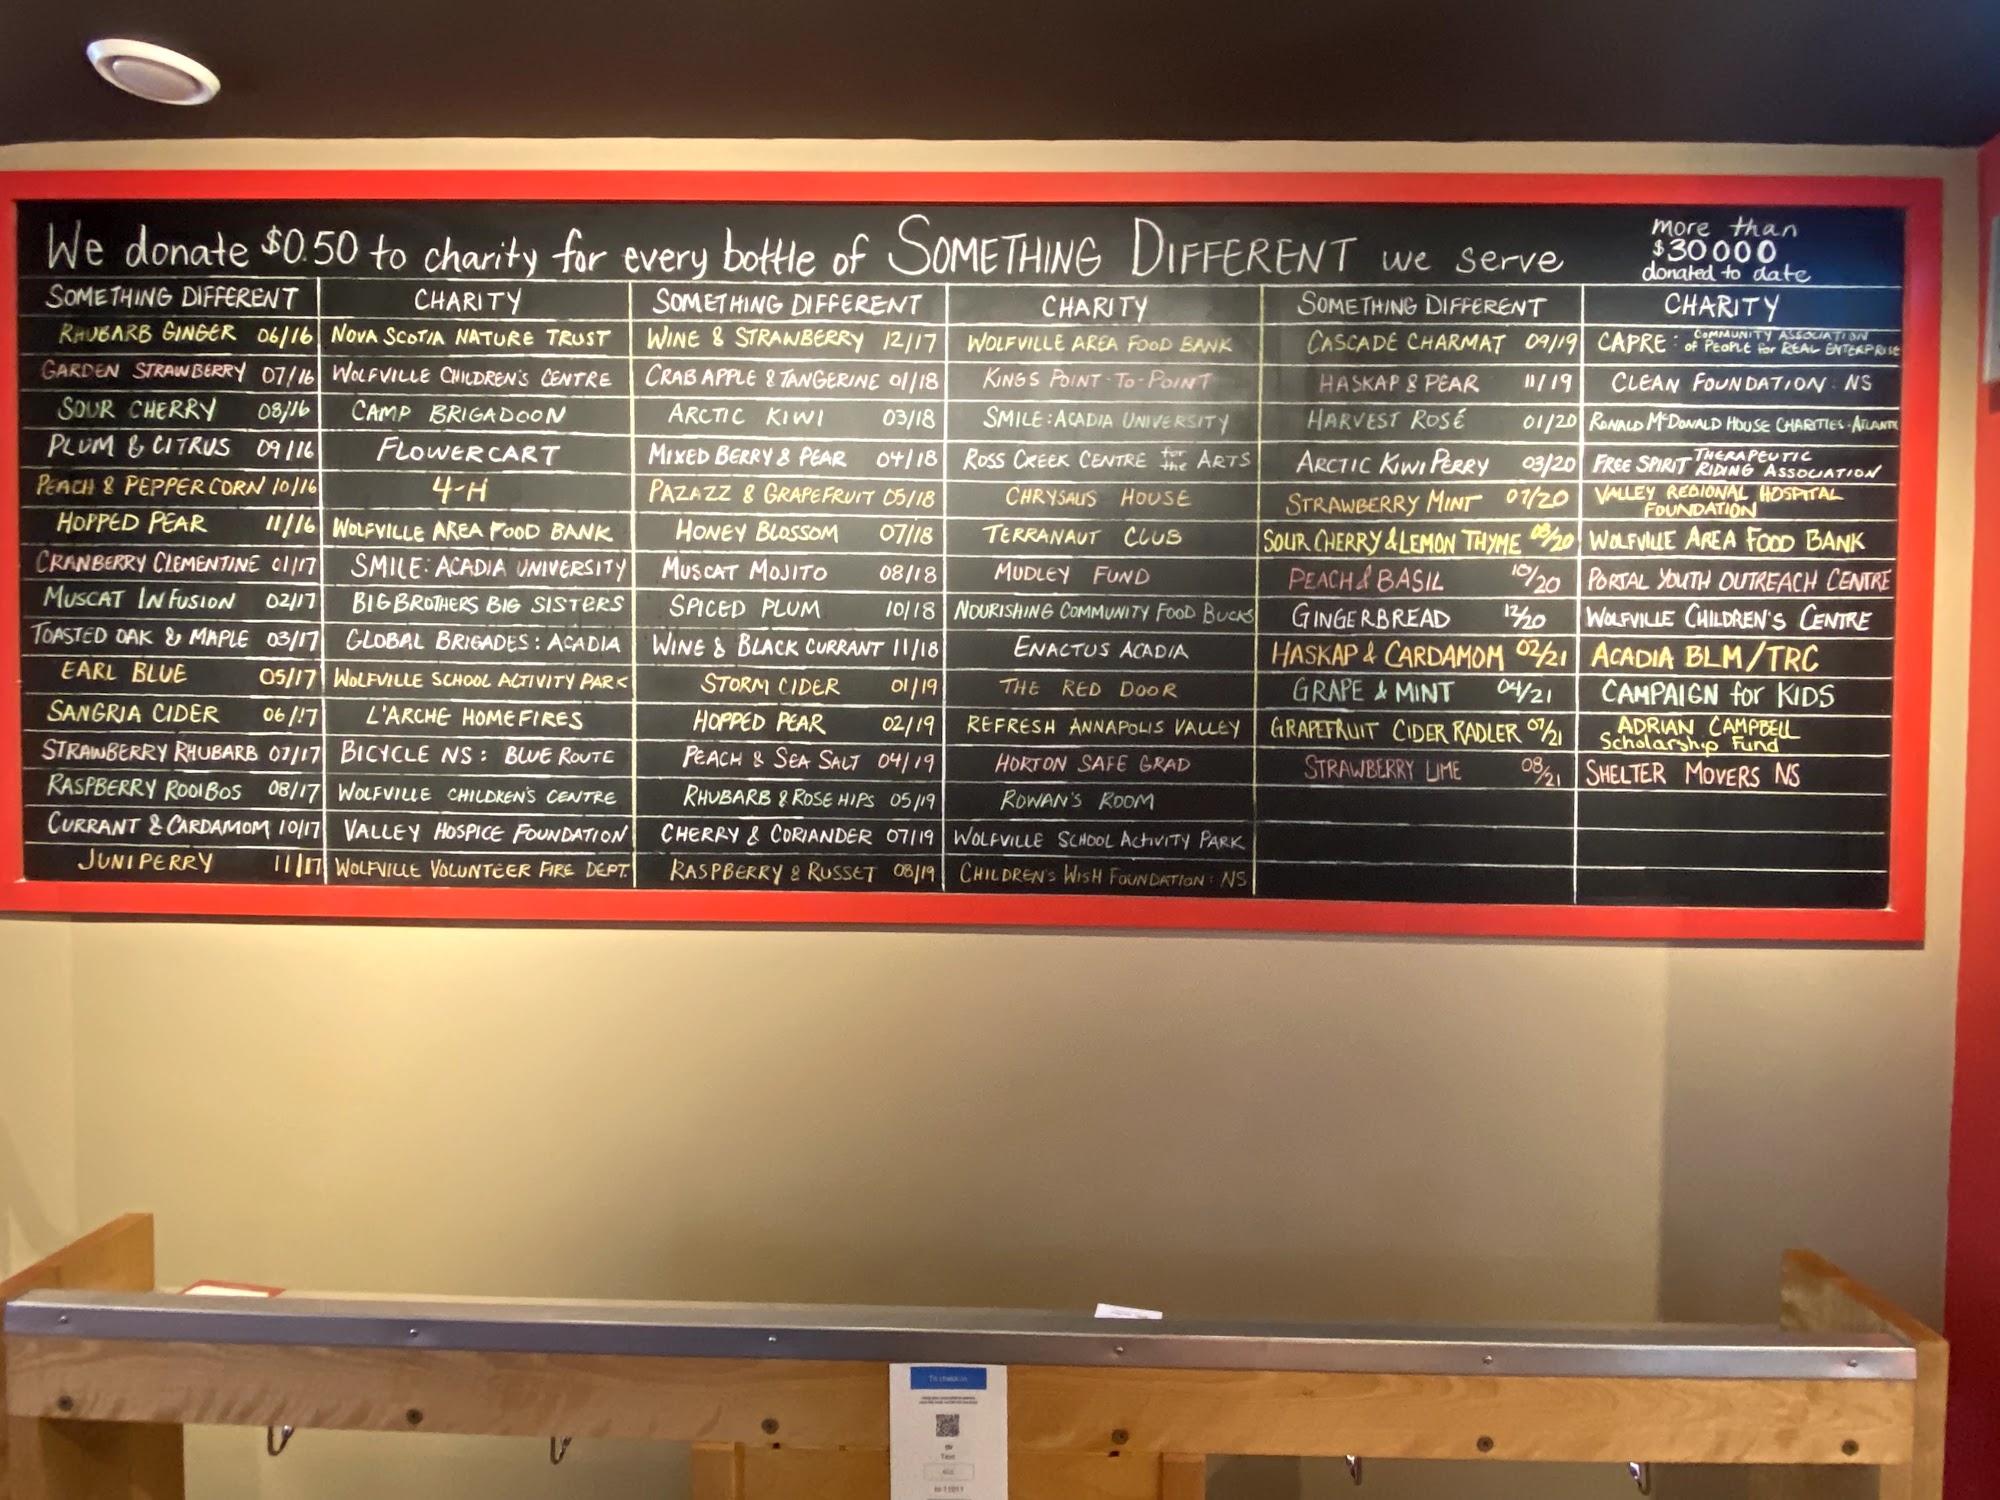 We donate $0.50 to charity for every bottle of SOMETHING DIFFERENT we serve
more than
$30000
donated to date
SOMETHING DIFFERENT CHARITY SOMETHING DIFFERENT CHARITY SOMETHING DIFFERENT CHARITY
RHUBARB GINGER 06/16 NOVA SCOTIA NATURE TRUST WINE & STRAWBERRY 12/17 WOLFVILLE AREA FOOD BANK CASCADE CHARMAT 09/19 CAPRE: COMMUNITY ASSOCIATION of PEOPLE for REAL ENTERPRISE
GARDEN STRAWBERRY 07/16 WOLFVILLE CHILDREN'S CENTRE CRABAPPLE & TANGERINE 01/18 KINGS POINT-TO-POINT HASKAP & PEAR 11/19 CLEAN FOUNDATION: NS
SOUR CHERRY 08/16 CAMP BRIGADOON ARCTIC KIWI 03/18 SMILE: ACADIA UNIVERSITY HARVEST ROSÉ 01/20 RONALD McDONALD HOUSE CHARITIES-ATLANTIC
PLUM & CITRUS 09/16 FLOWERCART MIXED BERRY & PEAR 04/18 ROSS CREEK CENTRE for the ARTS ARCTIC KIWI PERRY 03/20 FREE SPIRIT THERAPEUTIC RIDING ASSOCIATION
PEACH & PEPPERCORN 10/16 4-H PAZAZZ & GRAPEFRUIT 05/18 CHRYSALIS HOUSE STRAWBERRY MINT 07/20 VALLEY REGIONAL HOSPITAL FOUNDATION
HOPPED PEAR 11/16 WOLFVILLE AREA FOOD BANK HONEY BLOSSOM 07/18 TERRANAUT CLUB SOUR CHERRY & LEMON THYME 08/20 WOLFVILLE AREA FOOD BANK
CRANBERRY CLEMENTINE 01/17 SMILE: ACADIA UNIVERSITY MUSCAT MOJITO 08/18 MUDLEY FUND PEACH & BASIL 10/20 PORTAL YOUTH OUTREACH CENTRE
MUSCAT INFUSION 02/17 BIG BROTHERS BIG SISTERS SPICED PLUM 10/18 NOURISHING COMMUNITY FOOD BUCKS GINGERBREAD 12/20 WOLFVILLE CHILDREN'S CENTRE
TOASTED OAK & MAPLE 03/17 GLOBAL BRIGADES: ACADIA WINE & BLACK CURRANT 11/18 ENACTUS ACADIA HASKAP & CARDAMOM 02/21 ACADIA BLM/TRC
EARL BLUE 05/17 WOLFVILLE SCHOOL ACTIVITY PARK STORM CIDER 01/19 THE RED DOOR GRAPE & MINT 04/21 CAMPAIGN for KIDS
SANGRIA CIDER 06/17 L'ARCHE HOMEFIRES HOPPED PEAR 02/19 REFRESH ANNAPOLIS VALLEY GRAPEFRUIT CIDER RADLER 07/21 ADRIAN CAMPBELL Scholarship Fund
STRAWBERRY RHUBARB 07/17 BICYCLE NS: BLUE ROUTE PEACH & SEA SALT 04/19 HORTON SAFE GRAD STRAWBERRY LIME 08/21 SHELTER MOVERS NS
RASPBERRY ROOIBOS 08/17 WOLFVILLE CHILDREN'S CENTRE RHUBARB & ROSE HIPS 05/19 ROWAN'S ROOM
CURRANT & CARDAMOM 10/17 VALLEY HOSPICE FOUNDATION CHERRY & CORIANDER 07/19 WOLFVILLE SCHOOL ACTIVITY PARK
JUNIPERRY 11/17 WOLFVILLE VOLUNTEER FIRE DEPT. RASPBERRY & RUSSET 08/19 CHILDREN'S WISH FOUNDATION: NS
To check in
Text